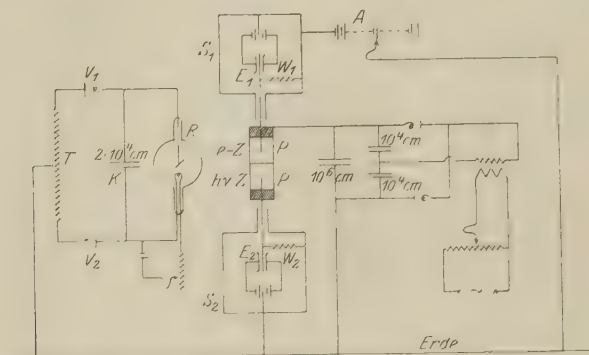 A
S₁
E₁ W₁
V₁
R
T 2·10⁴cm
K
e-Z P
hν Z P
10⁶cm
10⁴cm
10⁴cm
V₂
E₂ W₂
S₂
Erde